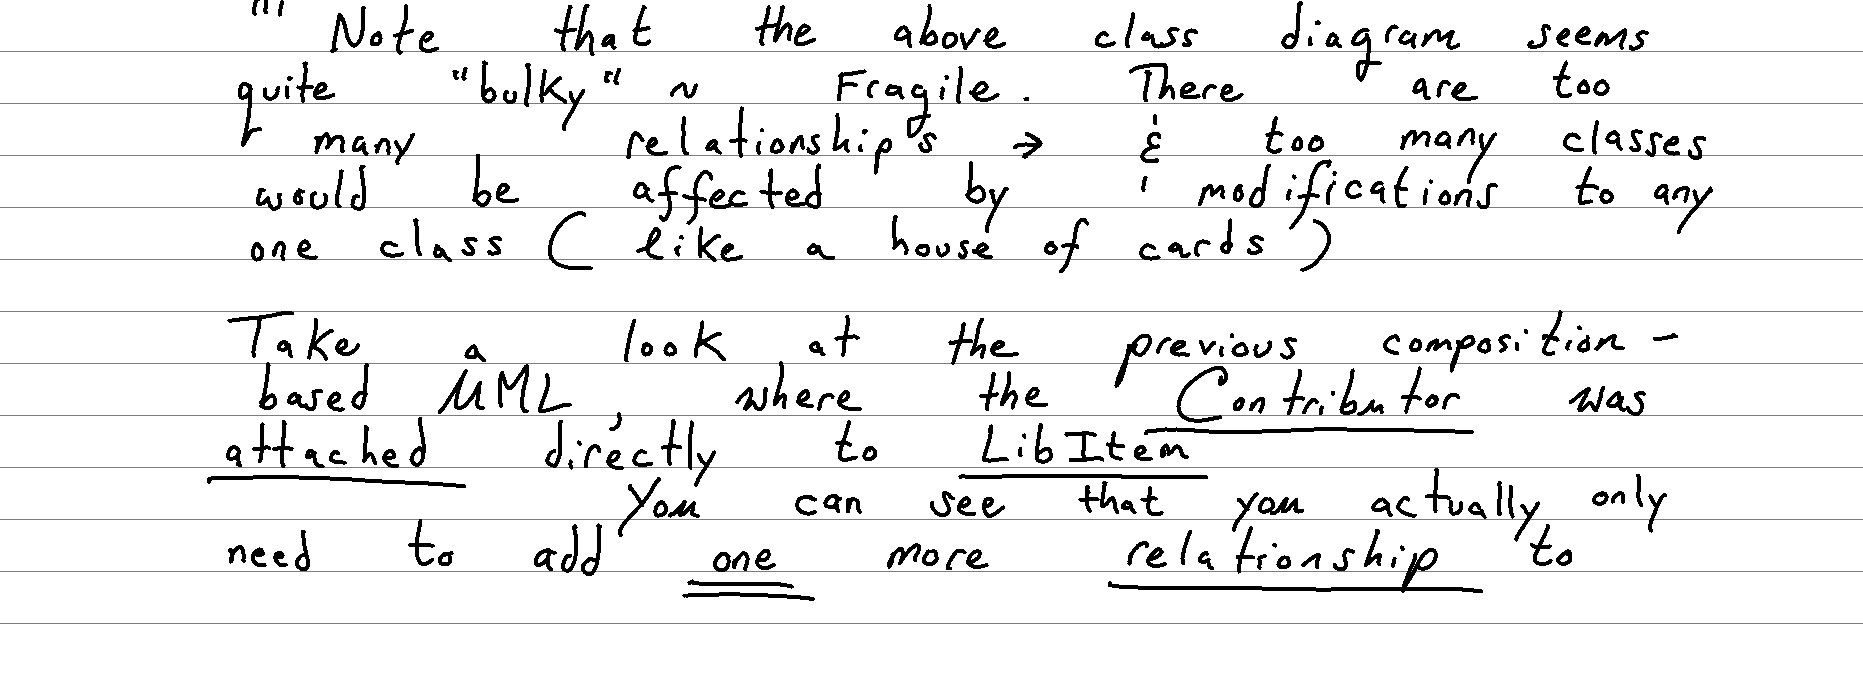 Note that the above class diagram seems
quite "bulky" ~ Fragile. There are too
many relationship's → & too many classes
would be affected by modifications to any
one class ( like a house of cards )
Take a look at the previous composition -
based UML, where the Contributor was
attached directly to LibItem
You can see that you actually only
need to add one more relationship to